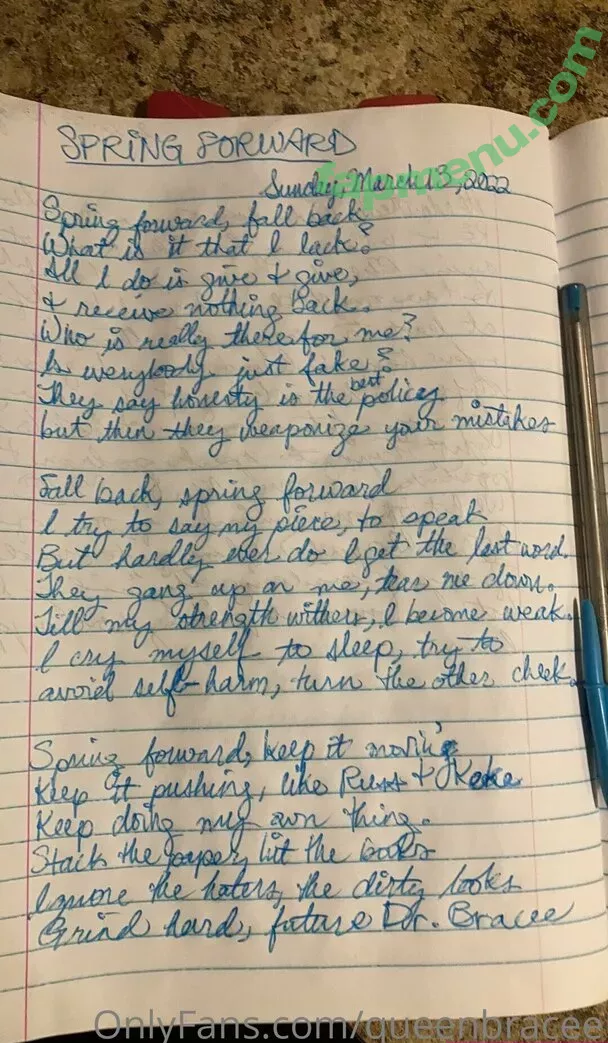 SPRING FORWARD
Sunday, March 13, 2022
Spring forward, fall back
What is it that I lack?
All I do is give & give,
& receive nothing back.
Who is really there for me?
Is everybody just fake?
They say honesty is the best policy
but then they weaponize your mistakes
Fall back, spring forward
I try to say my piece, to speak
But hardly ever do I get the last word.
They gang up on me, tear me down.
Till my strength withers, I become weak.
I cry myself to sleep, try to
avoid self-harm, turn the other cheek.
Spring forward, keep it movin'
Keep it pushing, like Russ & Keke
Keep doing my own thing.
Stack the paper, hit the books
Ignore the haters, the dirty looks
Grind hard, future Dr. Bracee
fapmenu.com
OnlyFans.com/queenbracee